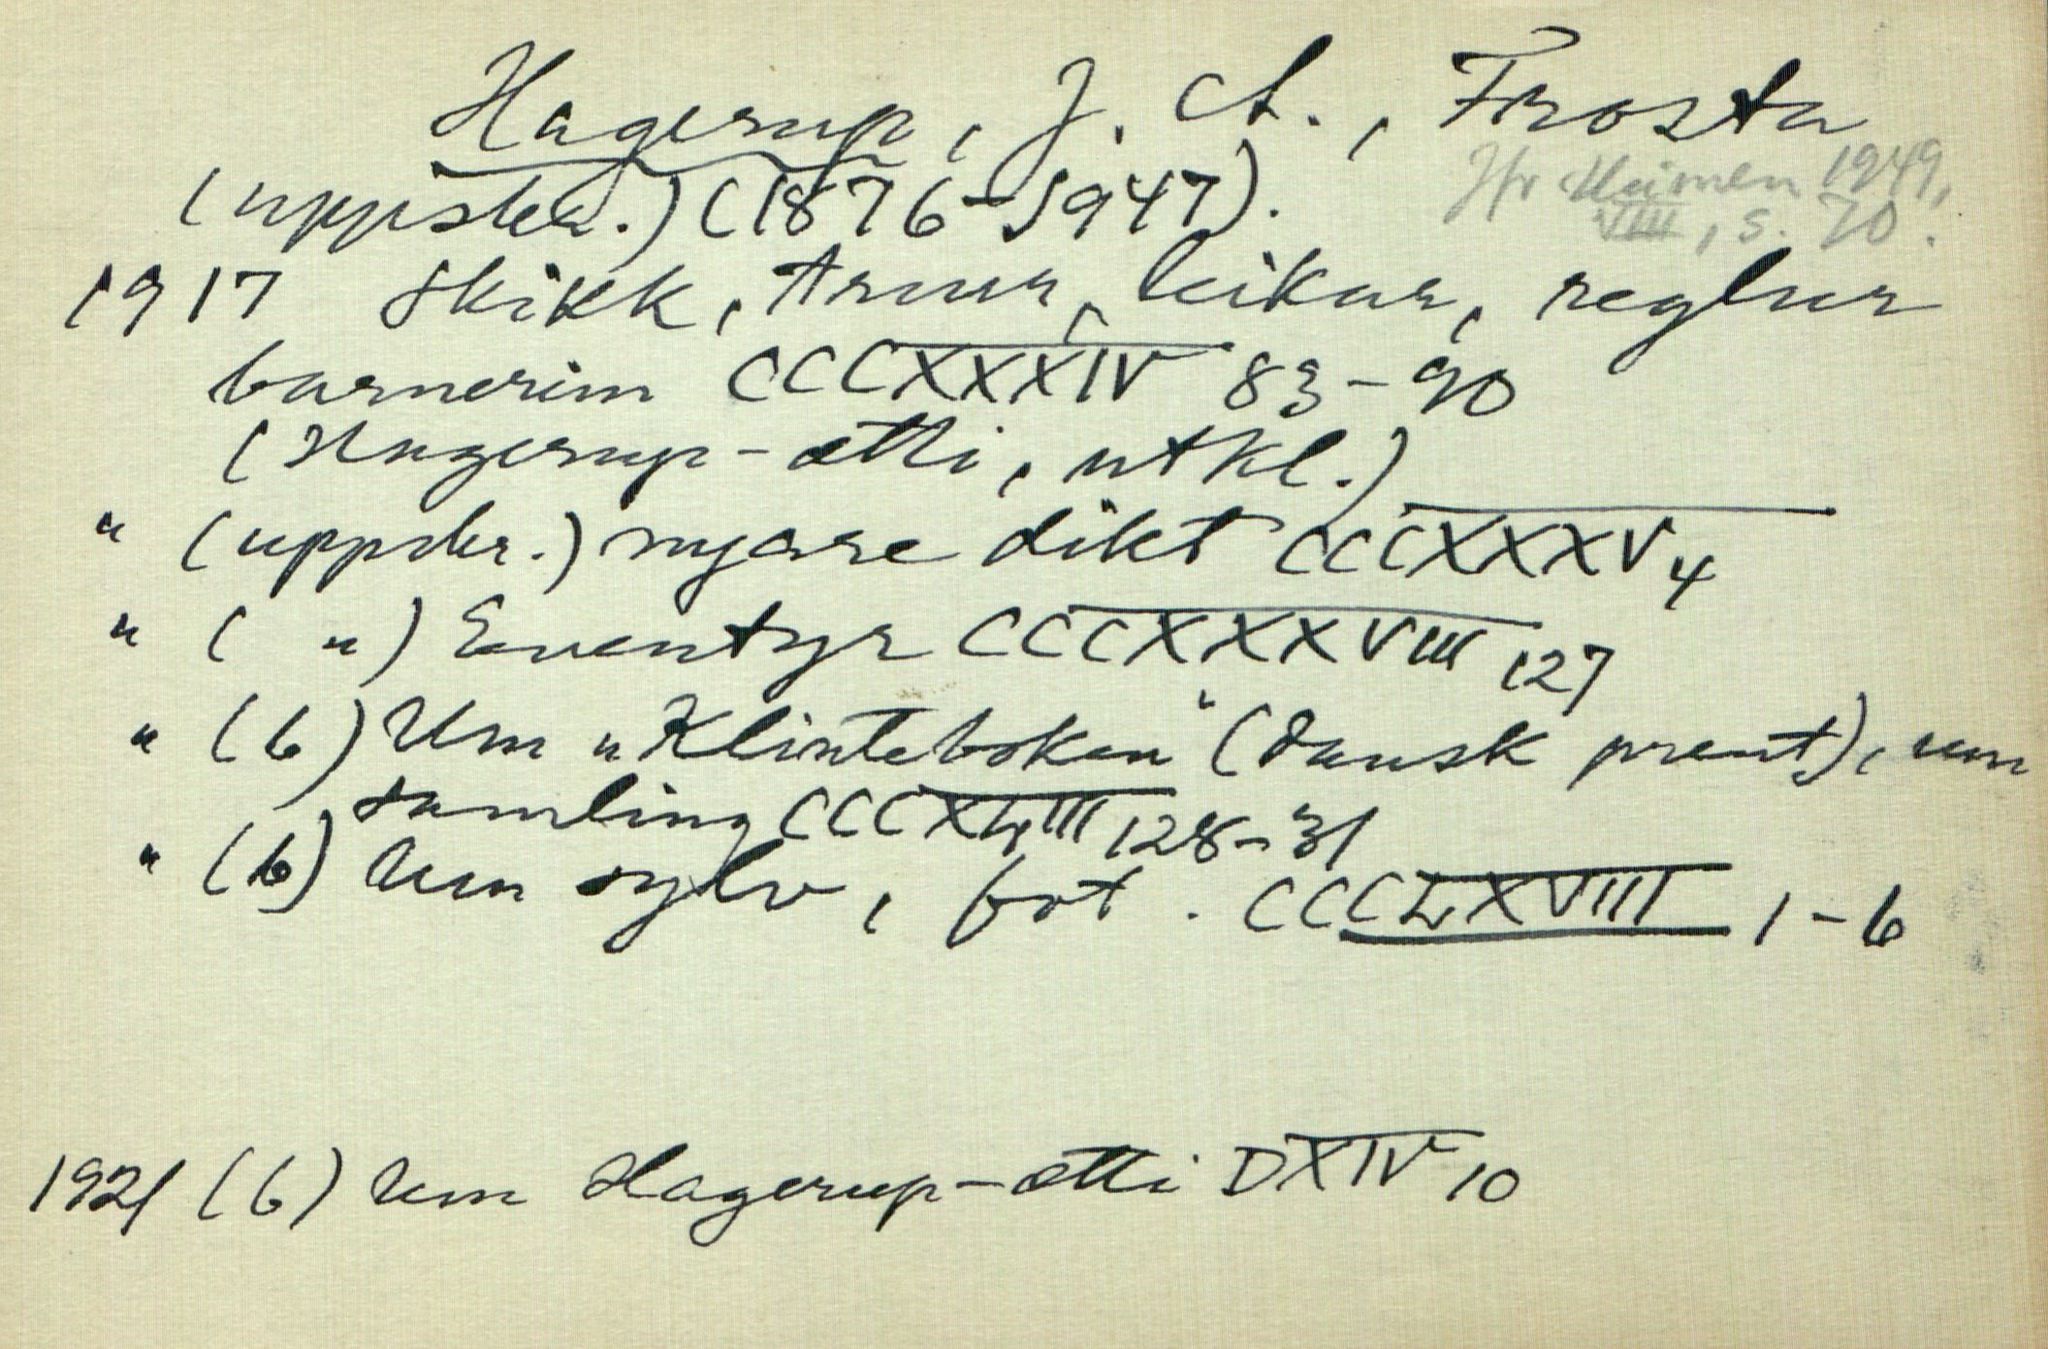 Hagerup, J. A., Frosta
(uppskr.) (1876-1947).
Jfr Heimen 1949,
VIII, s. 70.
1917 Skikk, truur, leikar, reglur
barnerim CCCXXXIV 83-90
(Hagerup-ætti, utkl.)
" (uppskr.) nyare dikt CCCXXXV 4
" ( " ) Eventyr CCCXXXVIII 127
" (b) Um "Klinteboken" (dansk prent), um
samling CCCXLIII 128-31
" (b) Um sylv, fot. CCCLXVIII 1-6
1921 (b) Um Hagerup-ætti DXIV 10